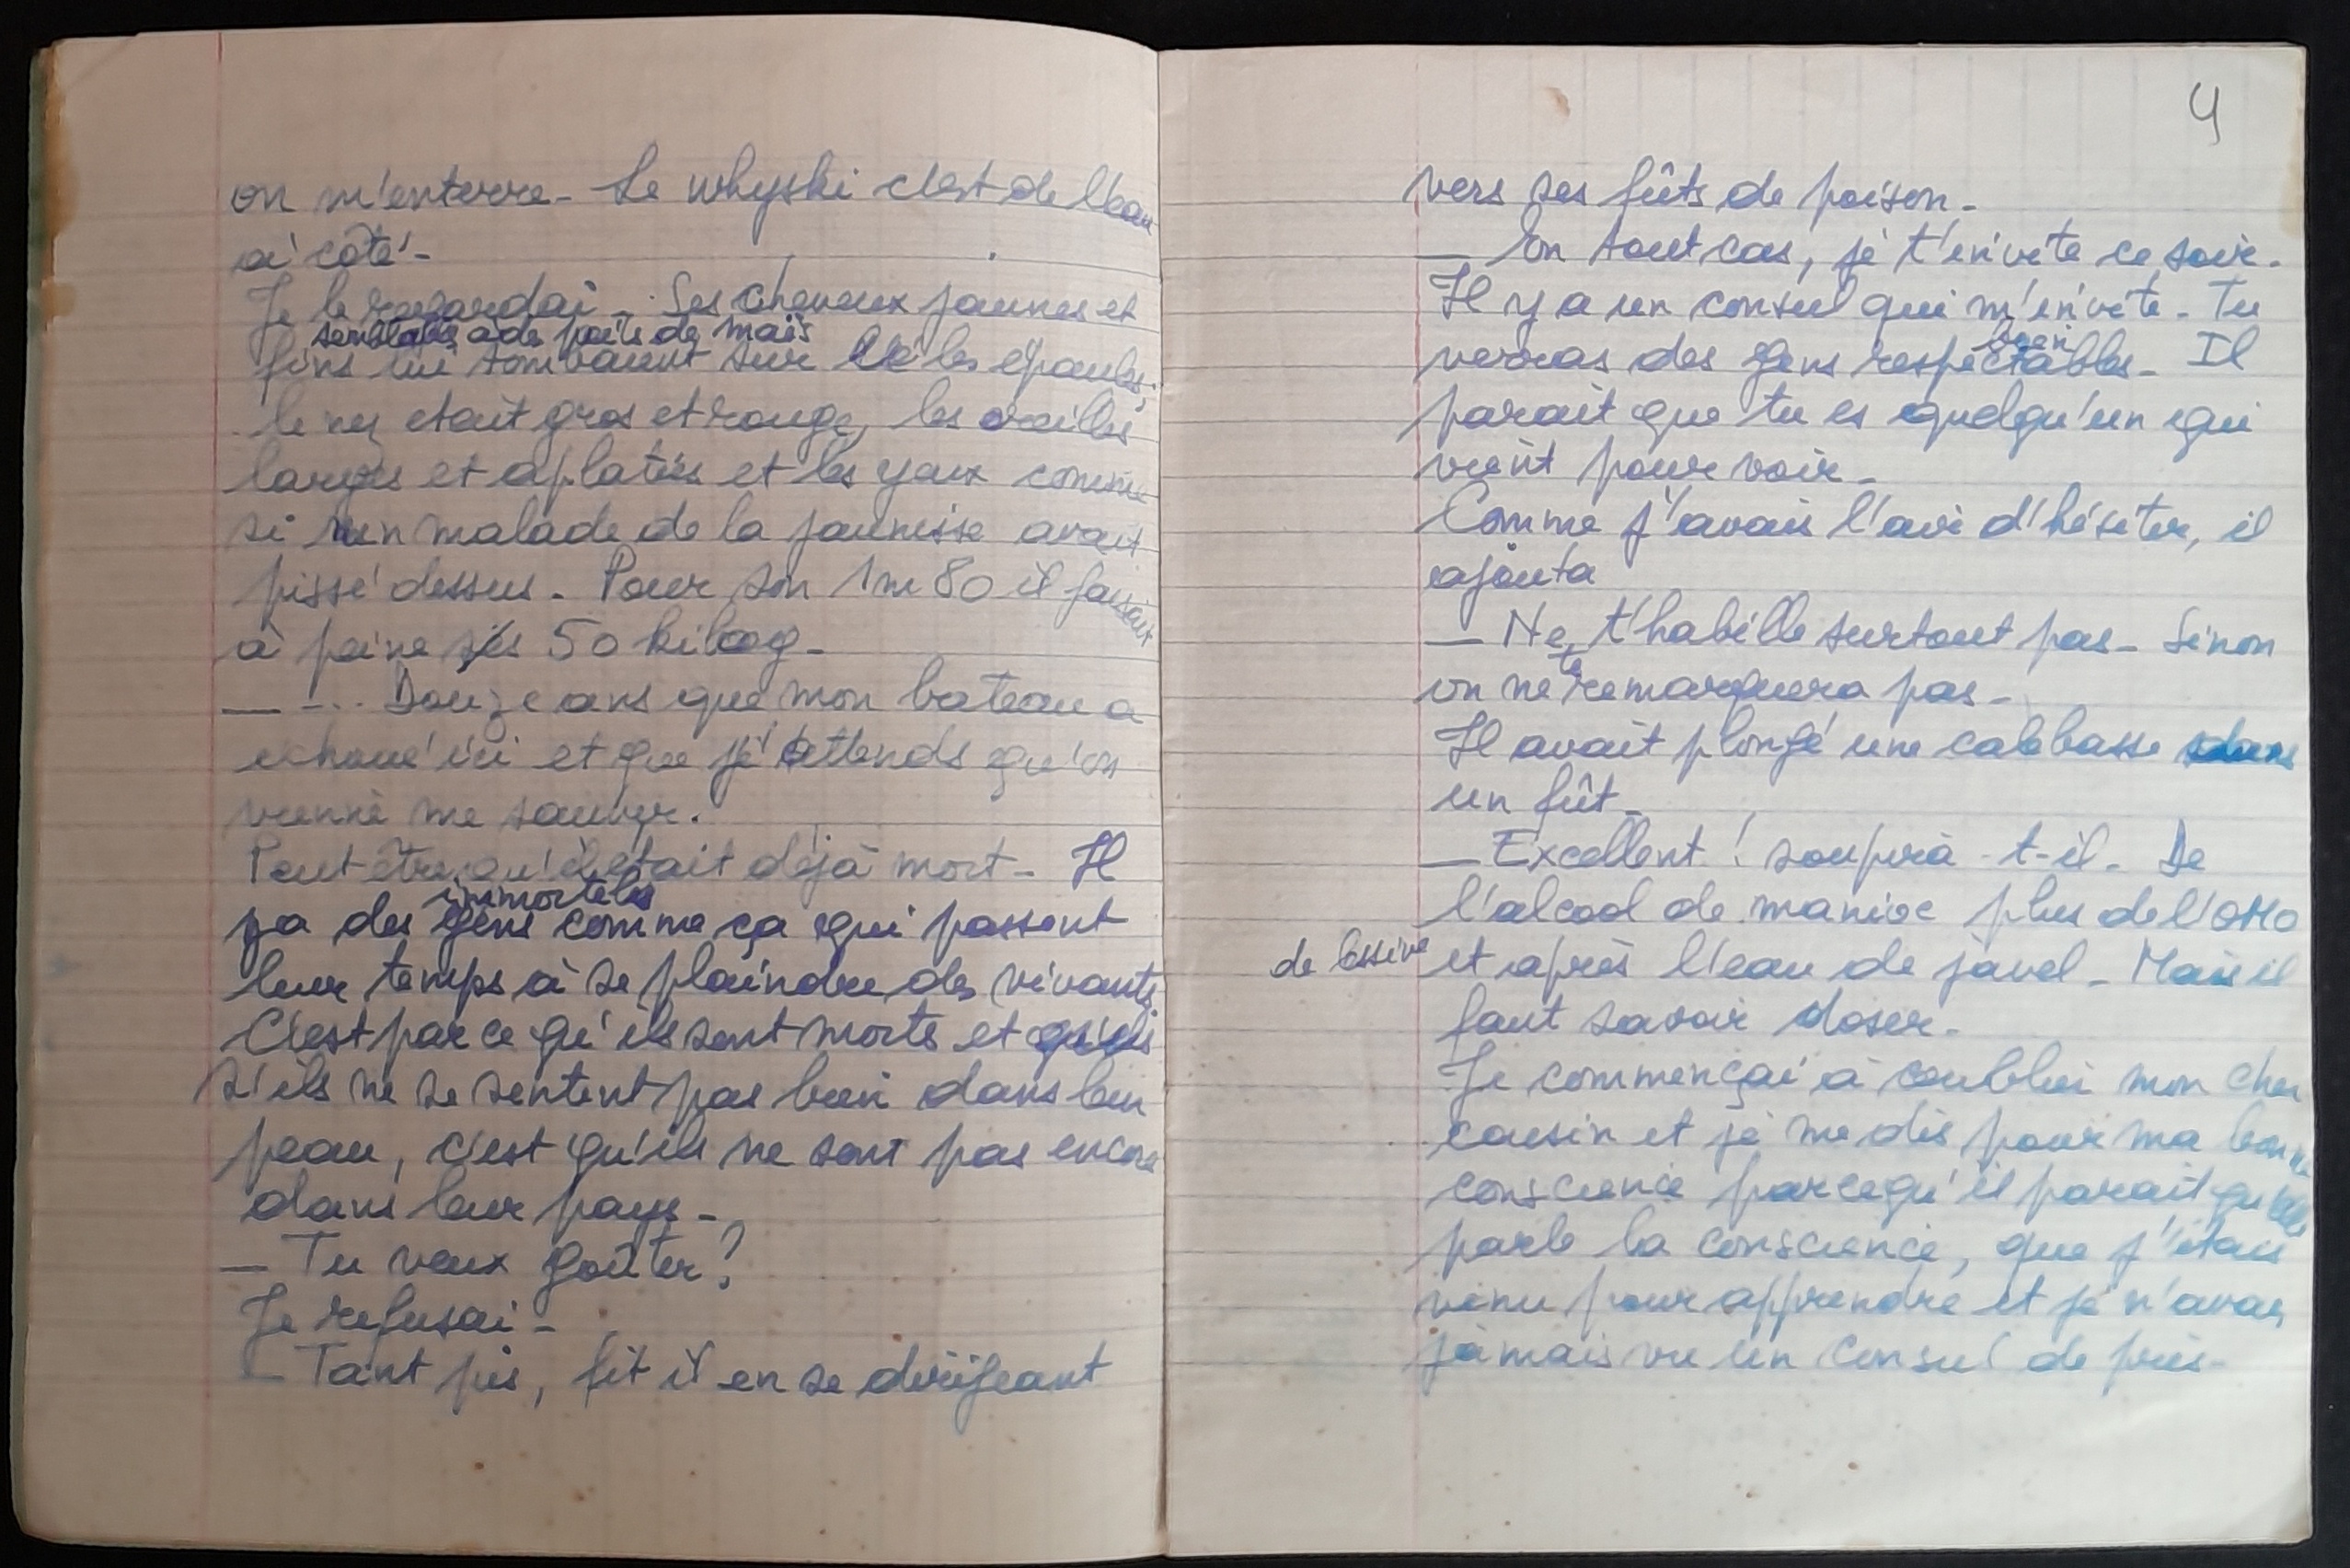 on m'enterre - Le whyski c'est de l'eau
à côté -
Je le regardai - Ses cheveux jaunes et
semblables à de poils de maïs
fins lui tombaient sur les épaules,
le nez etait gros et rouge, les oreilles
larges et aplaties et les yeux comme
si un malade de la jaunisse avait
pissé dessus. Pour son 1m80 il faisait
à peine ses 50 kilog -
— ... Douze ans que mon bateau a
echoué ici et que j'attends qu'on
vienne me sauver.
Peut être qu'il était déjà mort - Il
immortels
ya des gens comme ça qui passent
leur temps à se plaindre des vivants.
C'est parce qu'ils sont morts et qu'ils
s'ils ne se sentent pas bien dans leur
peau, c'est qu'ils ne sont pas encore
dans leur pays -
— Tu veux goûter ?
Je refusai -
— Tant pis, fit il en se dirigeant
4
vers ses fûts de poison -
— En tout cas, je t'invite ce soir.
Il y a un consul qui m'invite - Tu
bien
verras des gens respectables - Il
parait que tu es quelqu'un qui
vient pour voir -
Comme j'avais l'air d'hésiter, il
ajouta
— Ne t'habille surtout pas - Sinon
te
on ne remarquera pas -
Il avait plongé une calebasse dans
un fût -
— Excellent ! soupira-t-il - De
l'alcool de manioc plus de l'OMO
de lessive et après l'eau de javel - Mais il
faut savoir doser -
Je commençai à oublier mon cher
cousin et je me dis pour ma bonne
conscience parcequ'il parait qu'elle
parle la conscience, que j'étais
venu pour apprendre et je n'avais
jamais vu un consul de près -